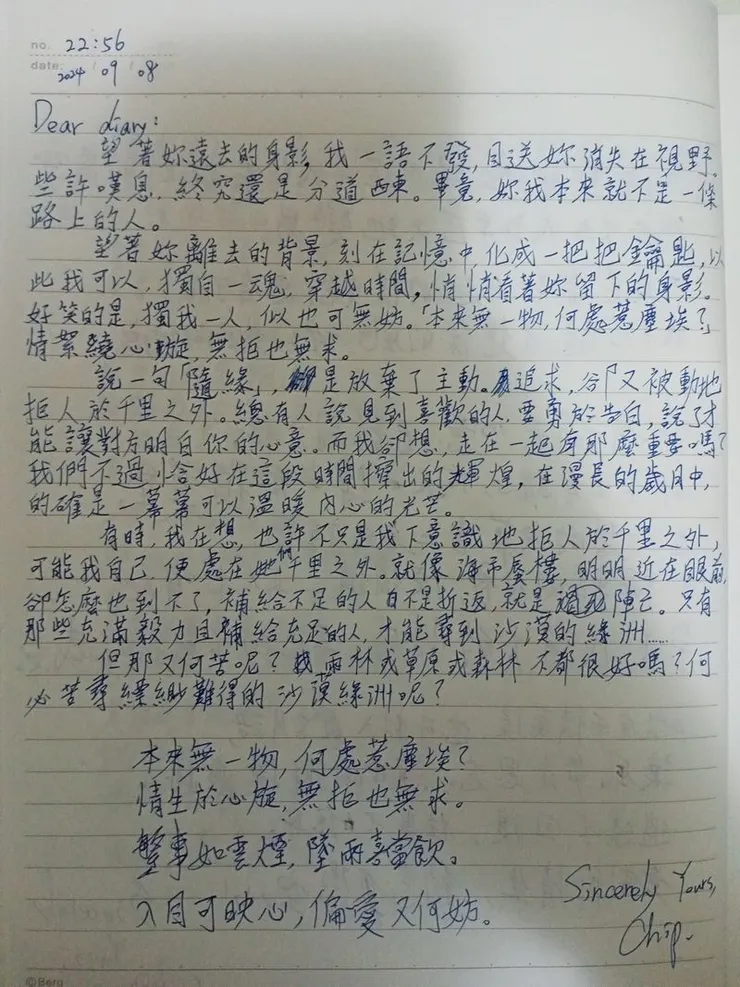 no. 22:56
date: 2024 / 09 / 08
Dear diary:
望著妳遠去的身影,我一語不發,目送妳消失在視野。
些許嘆息,終究還是分道西東。畢竟,妳我本來就不是一條
路上的人。
望著妳離去的背景,刻在記憶中,化成一把把鑰匙,以
此我可以,獨自一魂,穿越時間,悄悄看著妳留下的身影。
好笑的是,獨我一人,似也可無妨。「本來無一物,何處惹塵埃?」
情絮繞心旋,無拒也無求。
說一句「隨緣」,是放棄了主動。追求,卻又被動地
拒人於千里之外。總有人說見到喜歡的人,要勇於告白,說了才
能讓對方明白你的心意。而我卻想,走在一起有那麼重要嗎?
我們不過恰好在這段時間擦出的輝煌,在漫長的歲月中,
的確是一幕幕可以溫暖內心的光芒。
有時,我在想,也許不只是我下意識地拒人於千里之外,
可能我自己,便處在她們千里之外。就像海市蜃樓,明明近在眼前,
卻怎麼也到不了,補給不足的人不是折返,就是。只有
那些充滿毅力且補給充足的人,才能尋到沙漠的綠洲……
但那又何苦呢?雨林或草原或森林不都很好嗎?何
必苦尋縹緲難得的沙漠綠洲呢?
本來無一物,何處惹塵埃?
情生於心旋,無拒也無求。
事如雲煙,墜雨喜當飲。
入目可映心,偏愛又何妨。
Sincerely Yours,
Chip.
©Berg